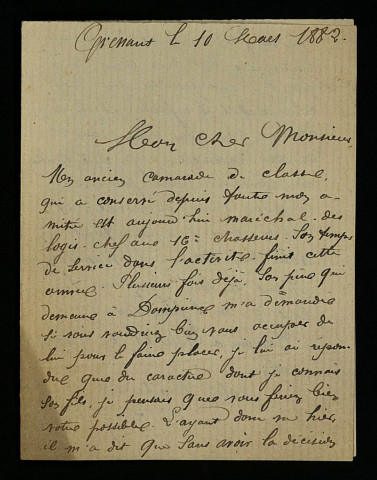 Grenant le 10 Mars 1882.
Mon cher Monsieur,
Un ancien camarade de classe,
qui a conservé depuis toute mon a-
mitié est aujourd'hui maréchal-des
logis-chef aux 16e chasseurs. Son temps
de service dans l'activité finit cette
année. Plusieurs fois déjà, son père qui
demeure à Dampierre m'a demandé
si vous voudriez bien vous occuper de
lui pour le faire placer, je lui ai répon-
due que du caractère dont je connais
son fils, je pensais que vous feriez bien
votre possible. L'ayant donc vu hier,
il m'a dit que sans avoir la décision